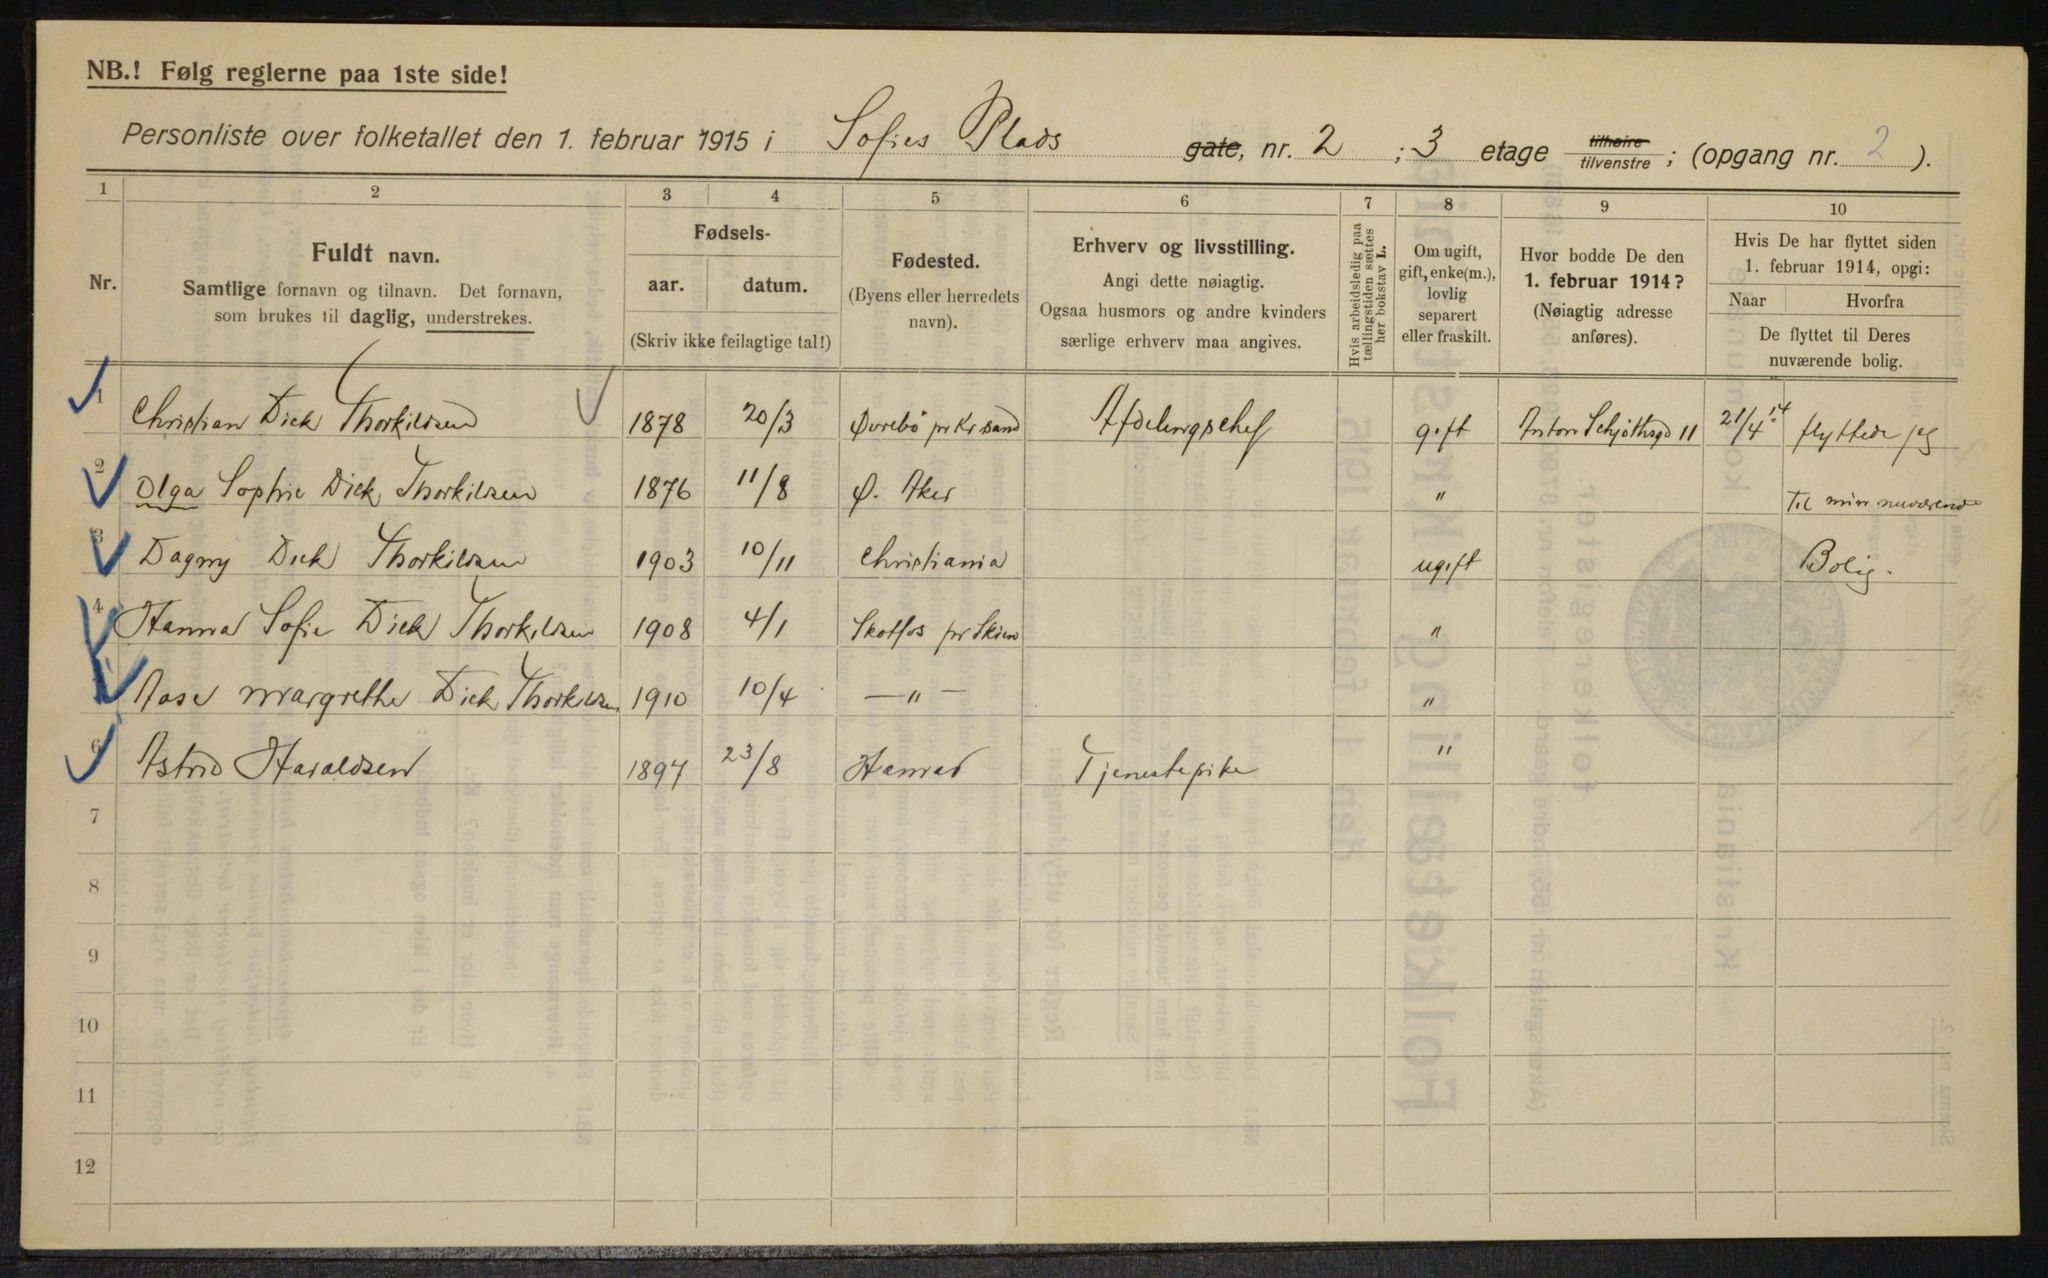 NB.! Følg reglerne paa 1ste side!
Personliste over folketallet den 1. februar 1915 i Sofies Plads gate, nr. 2 ; 3 etage tilhøire tilvenstre ; (opgang nr. 2 ).
1 2 3 4 5 6 7 8 9 10
Nr.
Fuldt navn.
Samtlige fornavn og tilnavn. Det fornavn,
som brukes til daglig, understrekes.
Fødsels-
aar. datum.
(Skriv ikke feilagtige tal!)
Fødested.
(Byens eller herredets
navn).
Erhverv og livsstilling.
Angi dette nøiagtig.
Ogsaa husmors og andre kvinders
særlige erhverv maa angives.
Hvis arbeidsledig paa
tællingstiden sættes
her bokstav L.
Om ugift,
gift, enke(m.),
lovlig
separert
eller fraskilt.
Hvor bodde De den
1. februar 1914?
(Nøiagtig adresse
anføres).
Hvis De har flyttet siden
1. februar 1914, opgi:
Naar Hvorfra
De flyttet til Deres
nuværende bolig.
1 Christian Dick Thorkildsen 1878 20/3 Øvrebø pr Kr sand Afdelingschef gift Anton Schjøthsgd 11 21/4 14 flyttede jeg
2 Olga Sophie Dick Thorkildsen 1876 11/8 Ø. Aker " til min nuværende
3 Dagny Dick Thorkildsen 1903 10/11 Christiania ugift Bolig.
4 Hanna Sofie Dick Thorkildsen 1908 4/1 Skotfos pr Skien "
Aase Margrethe Dick Thorkildsen 1910 10/4 — " — "
6 Astrid Haraldsen 1897 23/8 Tjenestepike "
7
8
9
10
11
12